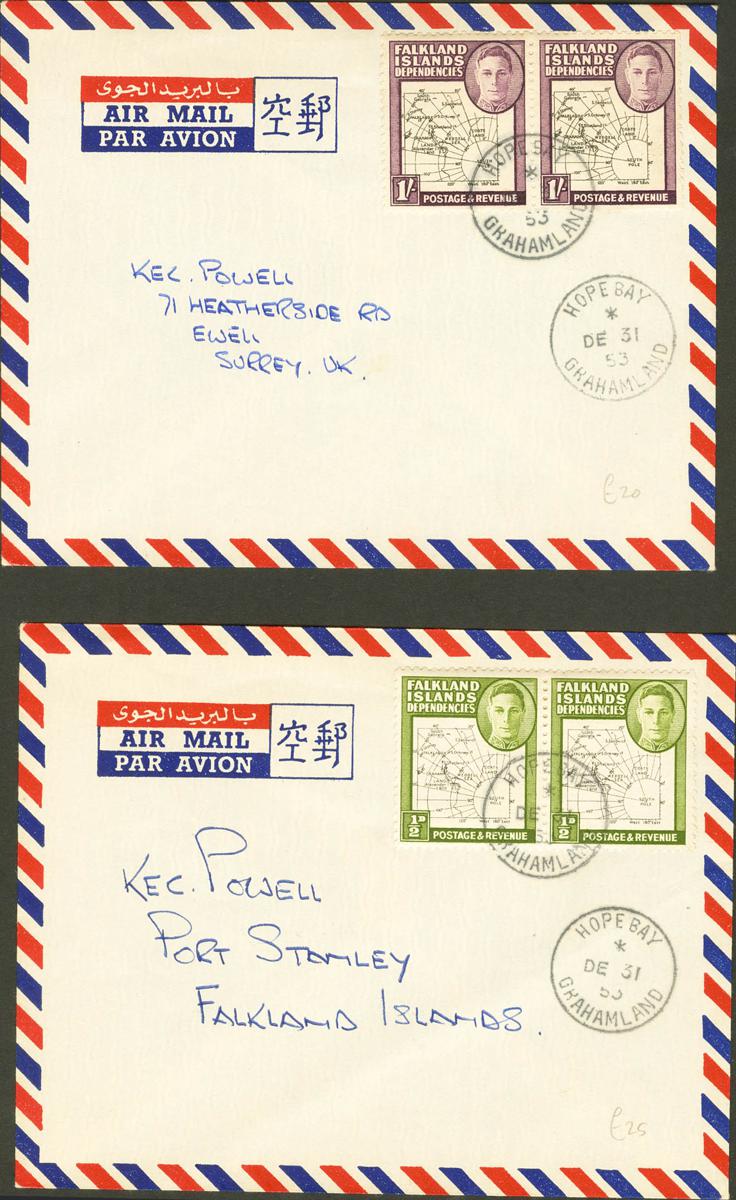 بالبريد الجوى
AIR MAIL
PAR AVION
空郵
FALKLAND ISLANDS DEPENDENCIES
SOUTH POLE
1/-
POSTAGE & REVENUE
FALKLAND ISLANDS DEPENDENCIES
SOUTH POLE
1/-
POSTAGE & REVENUE
HOPE BAY
*
53
GRAHAMLAND
KEC. POWELL
71 HEATHERSIDE RD
EWELL
SURREY. UK.
HOPE BAY
*
DE 31
53
GRAHAMLAND
£20
بالبريد الجوى
AIR MAIL
PAR AVION
空郵
FALKLAND ISLANDS DEPENDENCIES
SOUTH POLE
½D
POSTAGE & REVENUE
FALKLAND ISLANDS DEPENDENCIES
SOUTH POLE
½D
POSTAGE & REVENUE
HOPE BAY
*
DE
GRAHAMLAND
KEC. POWELL
PORT STANLEY
FALKLAND ISLANDS.
HOPE BAY
*
DE 31
53
GRAHAMLAND
£25